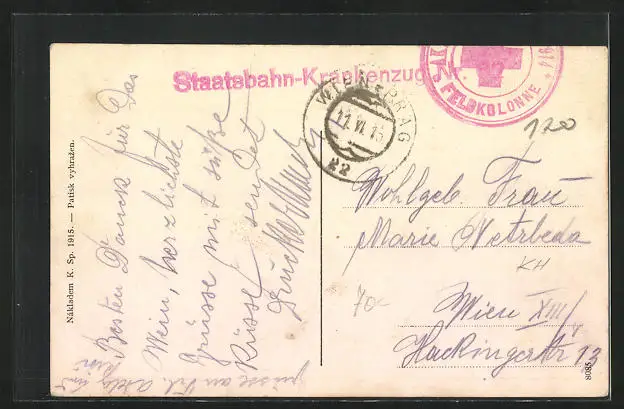 Staatsbahn-Krankenzug Nr.
FELDKOLONNE
1914
WIEN-PRAG
11.VI.15
K2
1200
Wohlgeb. Frau
Marie Netrbeda
KH
70.-
Wien XIII/
Hackingerstr 13
8085
Besten Danck für Das
Wein, herzlichste
Grüsse mit süße
Küsse sendet
Grüsse an Frl.
Nákladem K. Sp. 1915. — Patisk vyhražen.